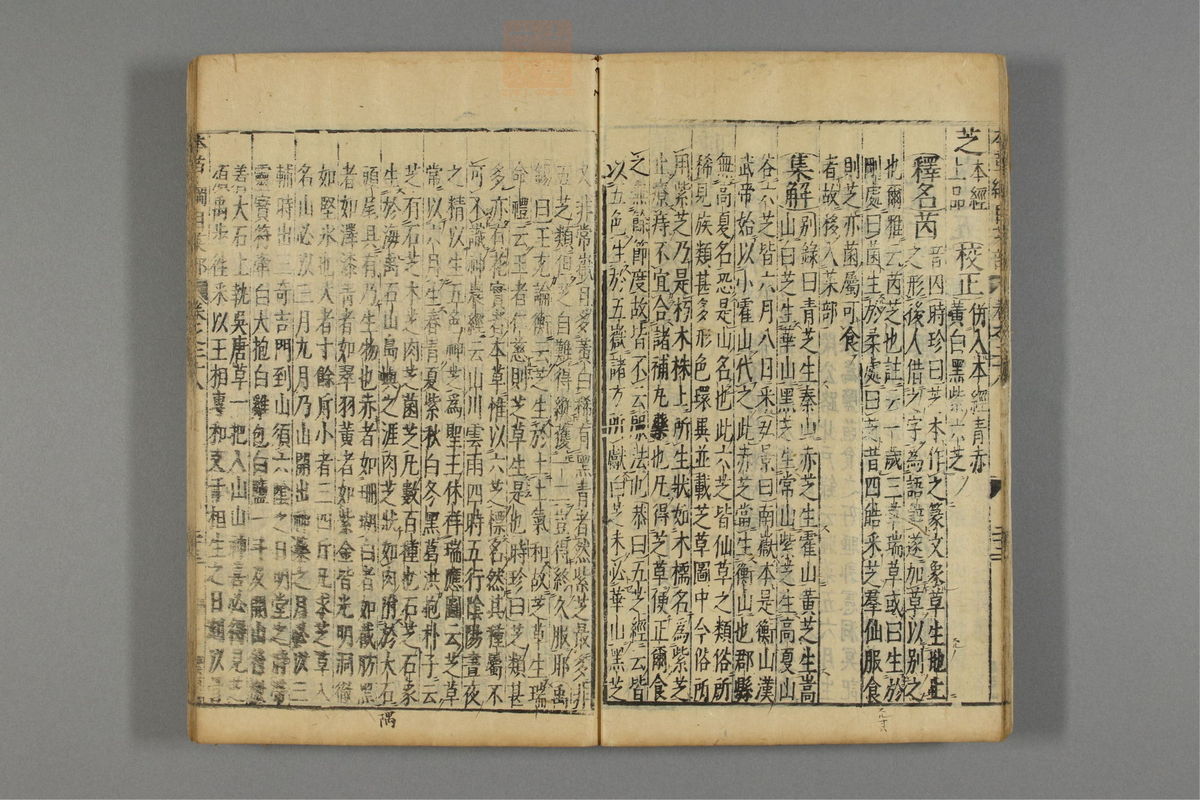 芝 本經上品 校正 併入本經青赤黃白黑紫六芝
釋名茵 音囚時珍曰芝本作之篆文象草生地上
之形後人借之字為語辭遂加草以別之
也爾雅云茵芝也註云一歲三華瑞草或曰生於
剛處曰菌生於柔處曰芝昔四皓采芝羣仙服食
則芝亦菌屬可食
者故移入菜部
集解 別錄曰青芝生泰山赤芝生霍山黃芝生嵩
山白芝生華山黑芝生常山紫芝生高夏山
谷六芝皆六月八日采弘景曰南嶽本是衡山漢
武帝始以小霍山代之此赤芝當生衡山也郡縣
無高夏名恐是山名也此六芝皆仙草之類俗所
稀見族類甚多形色環異並載芝草圖中今俗所
用紫芝乃是朽木株上所生狀如木檽名爲紫芝
止療痔不宜合諸補丸藥也凡得芝草便正爾食
之無餘節度故皆不云服法也恭曰五芝經云皆
以五色生於五嶽諸方所獻白芝未必華山黑芝
又非常嶽且多黃白稀有黑青者然紫芝最多非
五芝類但芝自難得縱獲一二豈得終久服耶禹
錫曰王充論衡云芝生於土土氣和故芝草生瑞
命禮云王者仁慈則芝草生是也時珍曰芝類甚
多亦有花實者本草惟以六芝標名然其種屬不
可不識神農經云山川雲雨四時五行陰陽晝夜
之精以生五色神芝爲聖王休祥瑞應圖云芝草
常以六月生春青夏紫秋白冬黑葛洪抱朴子云
芝有石芝木芝肉芝菌芝凡數百種也石芝石象
生於海离石山島嶼之涯肉芝狀如肉附於大石
頭尾具有乃生物也赤者如珊瑚白者如截肪黑
者如澤漆青者如翠羽黃者如紫金皆光明洞徹
如堅氷也大者十餘斤小者三四斤凡求芝草入
名山必以三月九月乃山開出神藥之月必以三
輔時出三奇吉門到山須六陰之日明堂之時帶
靈寶符牽白犬抱白雞包白鹽一斗及開山符檄
著大石上執吳唐草一把入山山神喜必得見芝
須禹步往采以王相專和支干相生之日刻以
本草綱目菜部 卷之二十八
隅